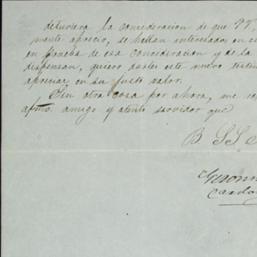 detuviera la consideracion de que VV,
mente aprecio, se hallan interesados en
en prueba de esa consideracion y de la
dispensan, quiero darles este nuevo
apreciar en su justo valor.
Sin otra cosa por ahora, me
afmo. amigo y atento servidor que
B. S. S.